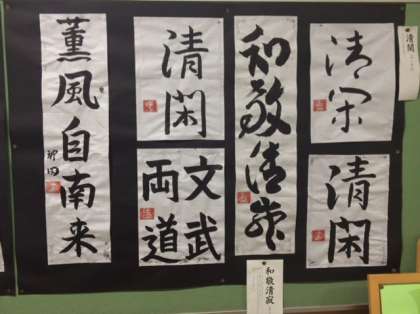 薫風自南来
清閑
文武
両道
和敬清寂
清閑
清閑
清閑
和敬清寂